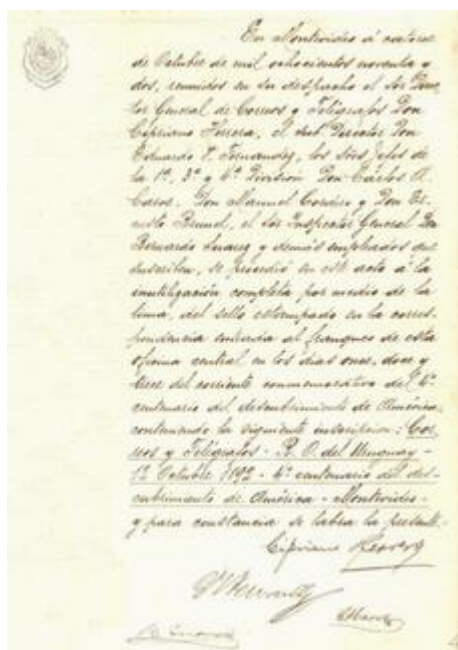 En Montevideo á catorce
de Octubre de mil ochocientos noventa y
dos, reunidos en su despacho el Sor Direc
tor General de Correos y Telégrafos Don
Cipriano Herrera, el Sub Director Don
Eduardo V. Fernandez, los Sres Jefes de
la 1ª, 3ª y 4ª División Don Cárlos A.
Don Manuel y Don Er
nesto Brunel, el Sor Inspector General Dn
Bernardo Suarez y demás empleados que
suscriben, se procedió en este acto á la
inutilización completa por medio de la
lima, del sello estampado en la corres-
pondencia entrada al franqueo de esta
oficina central en los dias once, doce y
trece del corriente conmemorativo del 4º
centenario del descubrimiento de América,
conteniendo la siguiente inscripcion: Cor
reos y Telégrafos - R. O. del Uruguay -
12 Octubre 1892 - 4º centenario del des-
cubrimiento de América - Montevideo -
y para constancia se labra la presente.
Cipriano Herrera